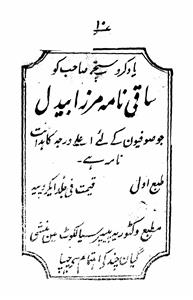 ۱۰
یاد کرو شیخ صاحب کو
ساقی نامہ مرزا بیدل
جو صوفیوں کے لئے اعلے درجہ کا ہدایت
نامہ ہے۔
طبع اول قیمت فی جلد ایکروپیہ
مطبع وکٹوریہ پیپر سیالکوٹ مین منشی
گیان چند کے اہتمام سے چھپا